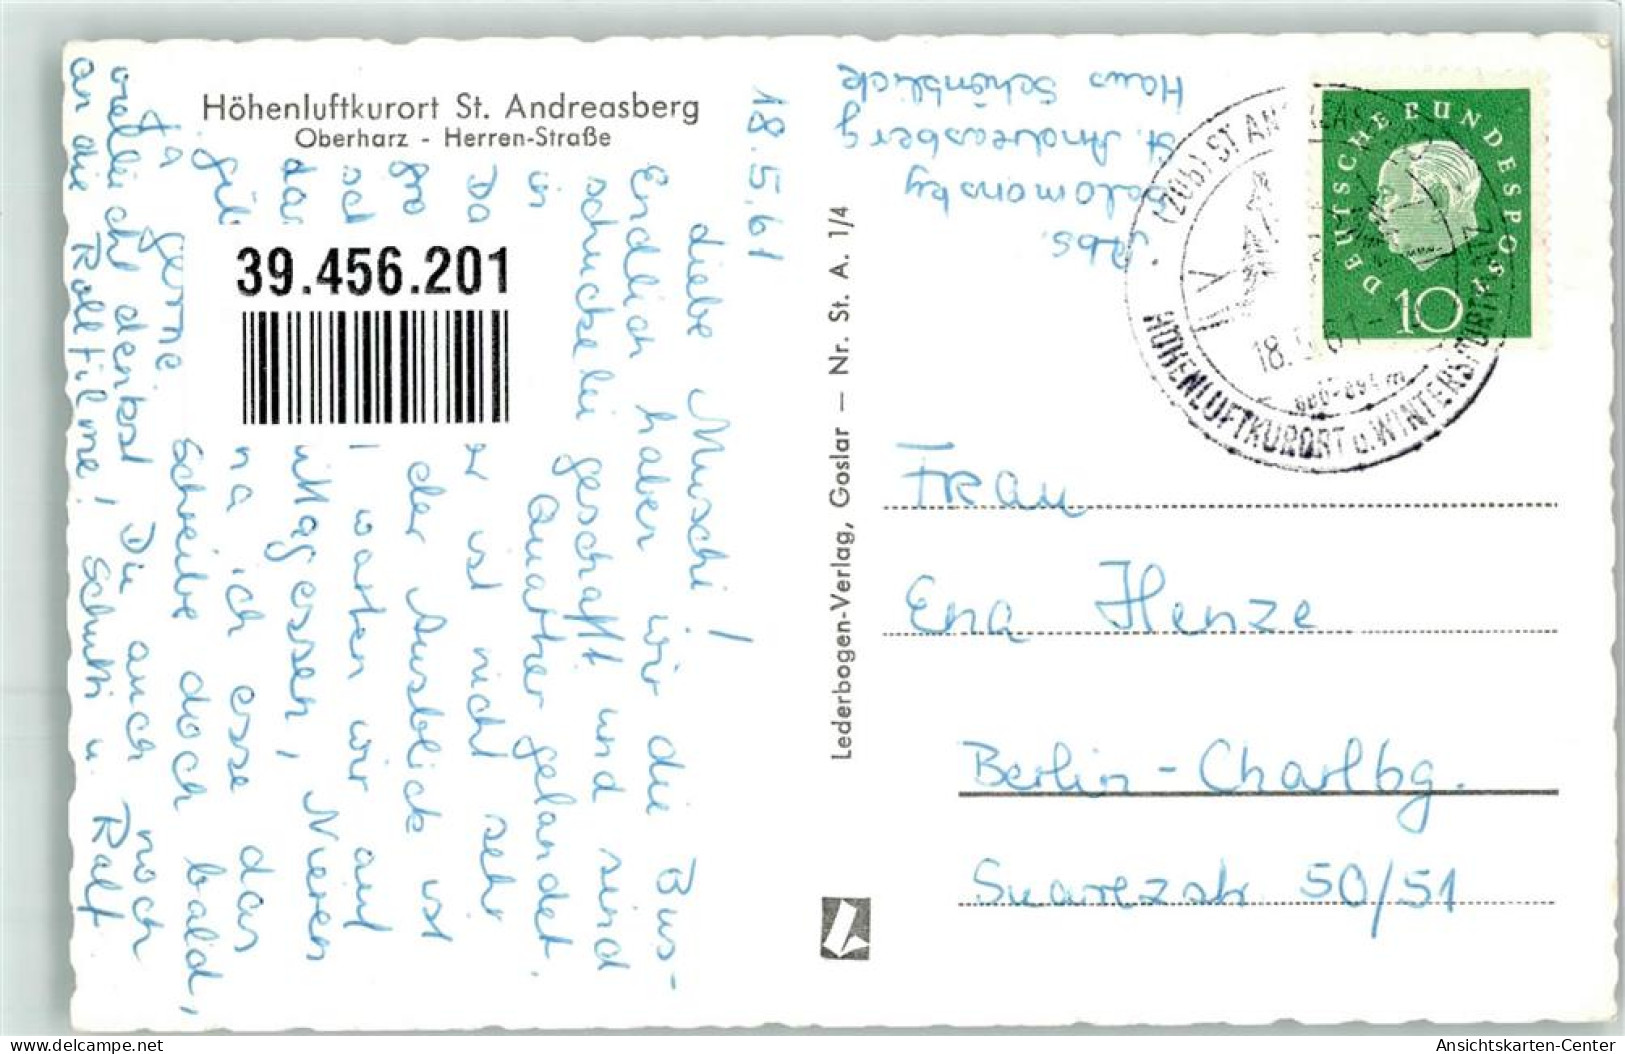 Höhenluftkurort St. Andreasberg
Oberharz - Herren-Straße
18.5.61
Liebe Muschi!
Endlich haben wir die Bus-
schuckelei geschafft und sind
in Quartier gelandet.
Da er ist nicht sehr
gro der Ausblick ist
sch warten wir auf
das ittagessen, Nieren
na ich esse das
gerne Schreibe doch bald,
vielleicht denkst Du auch noch
an die Rollfilme! Schutti u. Ralf
39.456.201
Lederbogen-Verlag, Goslar — Nr. St. A. 1/4
Abs.
Salomonsky
St. Andreasberg
Haus Schönblick
ST. ANDREASBERG
18.5.61
HÖHENLUFTKURORT u. WINTERSPORTPLATZ
DEUTSCHE BUNDESPOST
10
Frau
Ena Henze
Berlin - Charlbg.
Suarezstr 50/51
www.delcampe.net
tpk-de
Ansichtskarten-Center